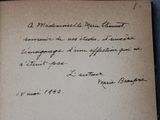 A Mademoiselle Marie
souvenir de nos études, et sincère
témoignage d'une affection qui ne
s'éteint pas
L'auteur
Marie
18 mai 1943